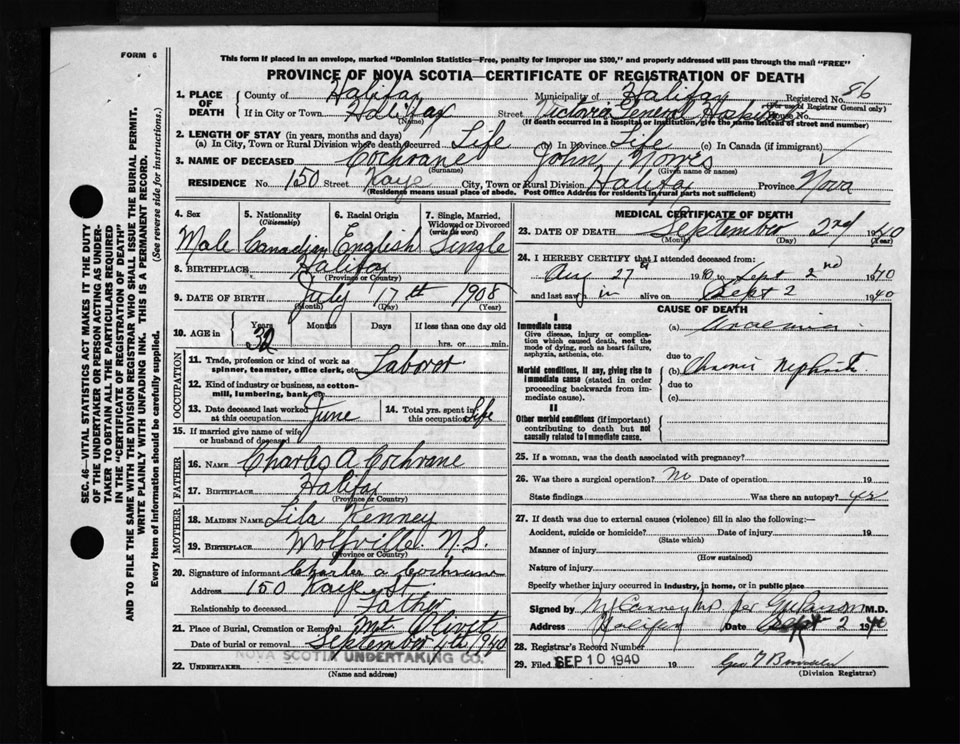 FORM 6
This form if placed in an envelope, marked "Dominion Statistics—Free, penalty for improper use $300," and properly addressed will pass through the mail "FREE"
PROVINCE OF NOVA SCOTIA—CERTIFICATE OF REGISTRATION OF DEATH
1. PLACE OF DEATH County of Halifax Municipality of Halifax Registered No. 86
(For use of Registrar General only)
If in City or Town Halifax Street Victoria General Hospital House No.
(Name) (If death occurred in a hospital or institution, give the name instead of street and number)
2. LENGTH OF STAY (in years, months and days)
(a) In City, Town or Rural Division where death occurred Life (b) In Province Life (c) In Canada (if immigrant)
3. NAME OF DECEASED Cochrane John Norris
(Surname) (Given name or names)
RESIDENCE No. 150 Street Kaye City, Town or Rural Division Halifax Province Nova
(Residence means usual place of abode. Post Office Address for residents in rural parts not sufficient)
SEC. 46—VITAL STATISTICS ACT MAKES IT THE DUTY
OF THE UNDERTAKER OR PERSON ACTING AS UNDER-
TAKER TO OBTAIN ALL THE PARTICULARS REQUIRED
IN THE "CERTIFICATE OF REGISTRATION OF DEATH"
AND TO FILE THE SAME WITH THE DIVISION REGISTRAR WHO SHALL ISSUE THE BURIAL PERMIT.
WRITE PLAINLY WITH UNFADING INK. THIS IS A PERMANENT RECORD.
Every item of information should be carefully supplied. (See reverse side for instructions.)
4. Sex 5. Nationality 6. Racial Origin 7. Single, Married,
(Citizenship) Widowed or Divorced
(write the word)
Male Canadian English Single
8. BIRTHPLACE Halifax
(Province or Country)
9. DATE OF BIRTH July 17th 1908
(Month) (Day) (Year)
10. AGE in Years Months Days If less than one day old
32 hrs. or min.
OCCUPATION
11. Trade, profession or kind of work as Laborer
spinner, teamster, office clerk, etc.
12. Kind of industry or business, as cotton-
mill, lumbering, bank, etc.
13. Date deceased last worked at this occupation June 14. Total yrs. spent in this occupation Life
15. If married give name of wife
or husband of deceased
FATHER
16. NAME Charles A Cochrane
17. BIRTHPLACE Halifax
(Province or Country)
MOTHER
18. MAIDEN NAME Lila Kenney
19. BIRTHPLACE Wolfville N.S.
(Province or Country)
20. Signature of informant Charles A Cochrane
Address 150 Kaye St
Relationship to deceased Father
21. Place of Burial, Cremation or Removal Mt Olivet
Date of burial or removal September 4th 1940
22. UNDERTAKER NOVA SCOTIA UNDERTAKING CO.
(Name and address)
MEDICAL CERTIFICATE OF DEATH
23. DATE OF DEATH September 2nd 1940
(Month) (Day) (Year)
24. I HEREBY CERTIFY that I attended deceased from:
Aug 27th 1940 to Sept 2nd 1940
and last saw him alive on Sept 2 1940
CAUSE OF DEATH
I
Immediate cause (a)
Give disease, injury or complica-
tion which caused death, not the
mode of dying, such as heart failure,
asphyxia, asthenia, etc.
due to
Morbid conditions, if any, giving rise to
immediate cause (stated in order
proceeding backwards from im-
mediate cause).
(b) Chronic Nephritis
due to
(c)
II
Other morbid conditions (if important)
contributing to death but not
causally related to immediate cause.
25. If a woman, was the death associated with pregnancy?
26. Was there a surgical operation? No Date of operation 19
State findings Was there an autopsy? yes
27. If death was due to external causes (violence) fill in also the following:
Accident, suicide or homicide? Date of injury 19
(State which)
Manner of injury
(How sustained)
Nature of injury
Specify whether injury occurred in industry, in home, or in public place
Signed by M.D.
Address Halifax Date Sept 2 1940
28. Registrar's Record Number
29. Filed SEP 10 1940 19
(Division Registrar)